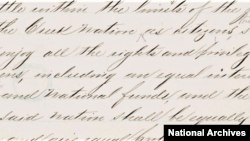 ttle within the limits of the
the Creek Nation as citizens
enjoy all the rights and privil
ens, including an equal inter
and national funds, and the
said nation shall be equally
National Archives